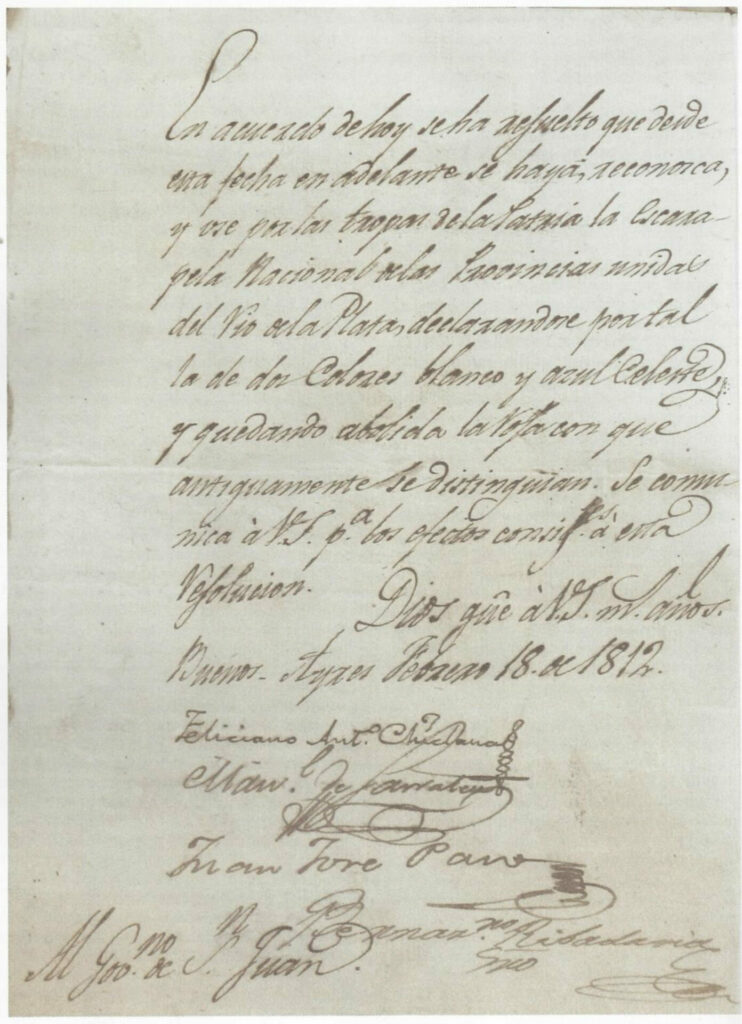 En acuerdo de hoy se ha resuelto que desde
esta fecha en adelante se haya, reconosca,
y use por las tropas de la Patria la Escara-
pela Nacional de las Provincias unidas
del Rio de la Plata, declarandose por tal
la de dos Colores blanco y azul Celeste,
y quedando abolida la Roja con que
antiguamente se distinguian. Se comu
nica à V.S. pa. los efectos consigtes. à esta
Resolucion.
Dios gũe à V.S. ms. años.
Buenos-Ayres Febrero 18. de 1812.
Feliciano Anto. Chiclana
Manl. de Sarratea
Juan José Paso
Bernardno. Ribadavia
Sno
Al Govno. de Sn. Juan.